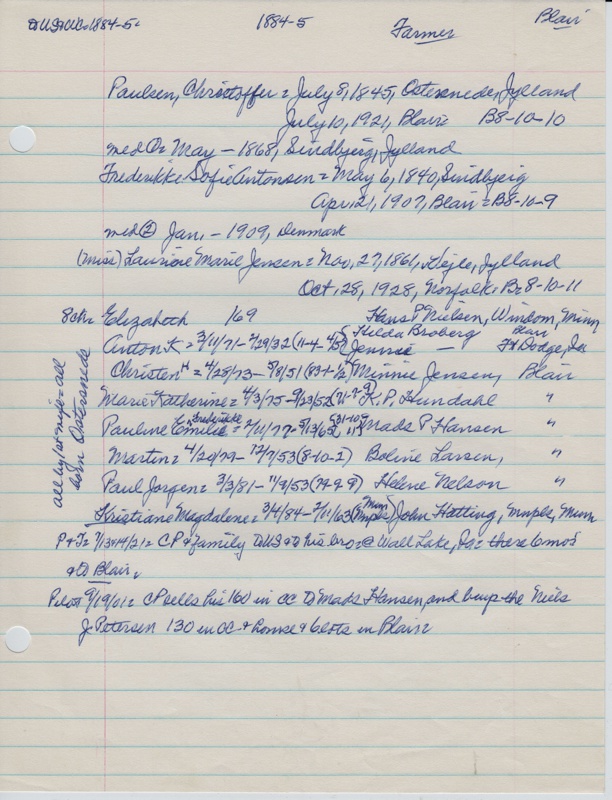 1884-5
Farmer
Blair
Paulsen, Christoffer = July 8, 1845, Ostersnede, Jylland
July 10, 1921, Blair B8-10-10
May - 1868, Sindbjerg, Jylland
Frederikke Sofie Antonsen = May 6, 1840, Sindbjerg
Apr. 21, 1907, Blair = B8-10-9
med ② Jan. - 1909, Denmark
(miss) Laurine Marie Jensen = Nov. 27, 1861, Jylland
Oct. 28, 1928, Norfolk = B8-10-11
8 chn Elizabeth 169 Hans P Nielsen, Windom, Minn
Hilda Broberg Blair
Anton K = 3/11/71 - 2/29/32 Jennie — Ft Dodge, Ia
Christen H = 4/28/73 - 5/8/51 Minnie Jensen, Blair
Marie Katherine = 4/3/75 - 9/23/52 K. P. Hundahl "
Pauline Emilie Frederikke = 2/11/77 - 5/13/65 Mads P Hansen "
Martin = 4/20/79 - 12/7/53 (8-10-2) Boline Larsen, "
Paul Jorgen = 3/3/81 - 11/9/53 Helene Nelson "
Kristiane Magdalene = 3/4/84 - 2/11/63 John Hatting, Mnpls, Minn
all by 1st wife = all
born Ostersnede
CP & family DUS to his bro @ Wall Lake, Ia = there 6 mos
& to Blair.
Pilot 9/19/01 = CP sells his 160 in CC to Mads Hansen and buys the Niels
J Petersen 130 in CC & house & 6 lots in Blair